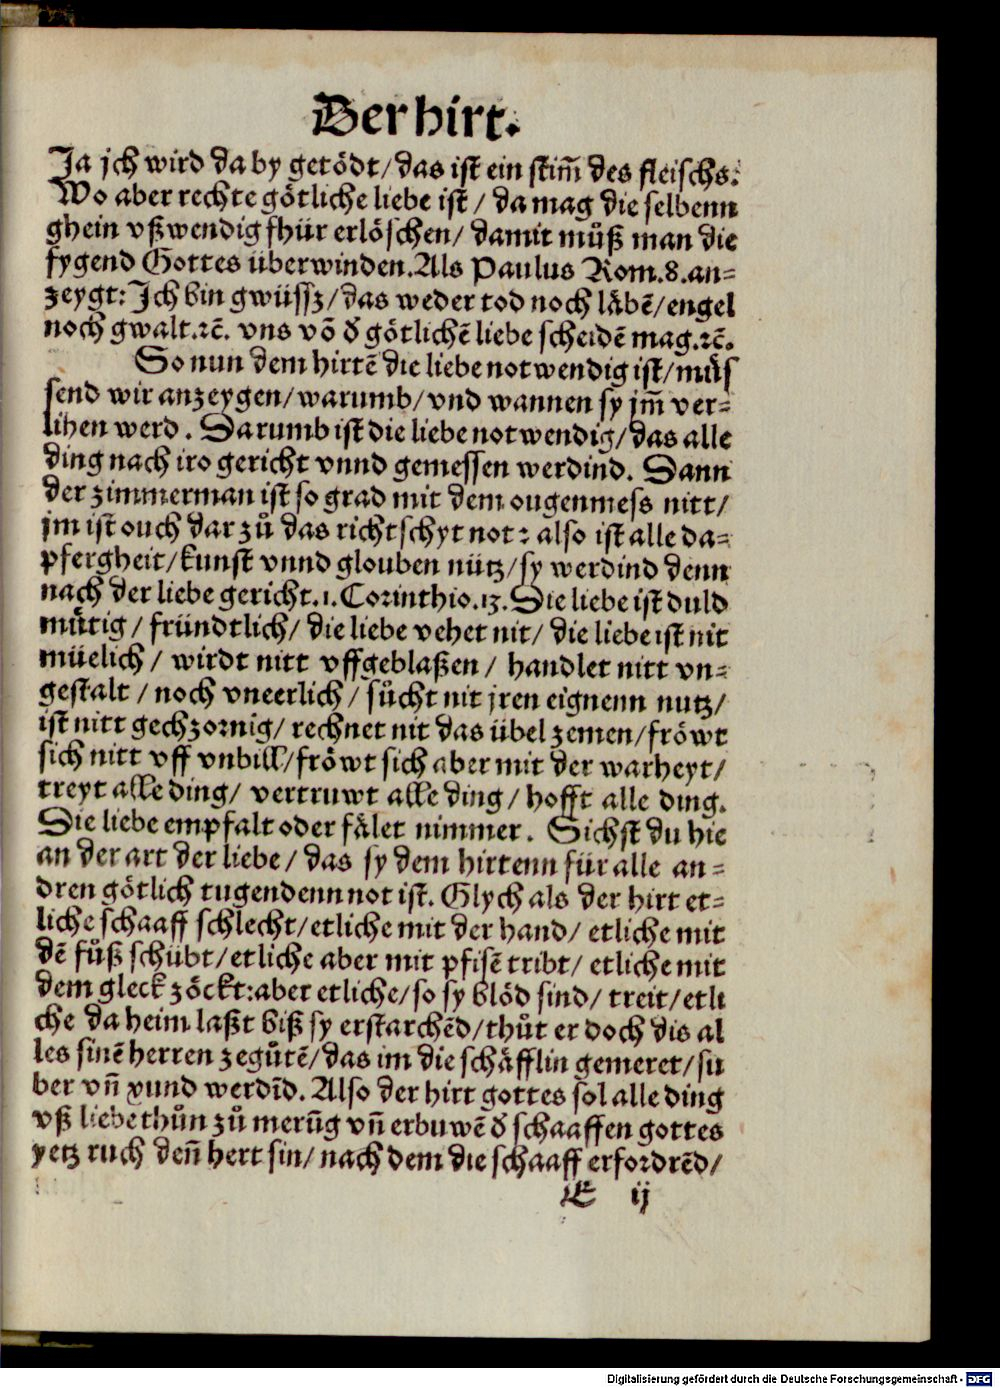 Der hirt.
Ja jch wird da by getödt/ das ist ein stim̄ des fleischs.
Wo aber rechte götliche liebe ist / da mag die selbenn
ghein vßwendig fhür erlöschen/ damit můß man die
fygend Gottes überwinden. Als Paulus Rom.8.an-
zeygt: Ich bin gwüssz/ das weder tod noch läbē/ engel
noch gwalt.ꝛc̄. vns vō d̕ götlichē liebe scheidē mag.ꝛc̄.
So nun dem hirtē die liebe notwendig ist/ müs
send wir anzeygen/ warumb/ vnd wannen sy jm̄ ver-
lihen werd. Darumb ist die liebe notwendig/ das alle
ding nach iro gericht vnnd gemessen werdind. Dann
der zimmerman ist so grad mit dem ougenmess nitt/
jm ist ouch dar zů das richtschyt not: also ist alle da-
pfergheit/ kunst vnnd glouben nütz/ sy werdind denn
nach der liebe gericht.1. Corinthio.13. Die liebe ist duld
mütig/ fründtlich/ die liebe vehet nit/ die liebe ist nit
müelich/ wirdt nitt vffgeblaßen/ handlet nitt vn-
gestalt / noch vneerlich/ sůcht nit jren eignenn nutz/
ist nitt gechzornig/ rechnet nit das übel zemen/ fröwt
sich nitt vff vnbill/ fröwt sich aber mit der warheyt/
treyt alle ding/ vertruwt alle ding/ hofft alle ding.
Die liebe empfalt oder fälet nimmer. Sichst du hie
an der art der liebe/ das sy dem hirtenn für alle an-
dren götlich tugendenn not ist. Glych als der hirt et-
liche schaaff schlecht/ etliche mit der hand/ etliche mit
dē fůß schübt/ etliche aber mit pfisē tribt/ etliche mit
dem gleck zöckt: aber etliche/ so sy blöd sind/ treit/ etli
che da heim laßt biß sy erstarchēd/ thůt er doch dis al
les sinē herren zegůtē/ das im die schäfflin gemeret/ su
ber vn̄ xund werdīd. Also der hirt gottes sol alle ding
vß liebe thůn zů merūg vn̄ erbuwē d̕ schaaffen gottes
yetz ruch den̄ hert sin/ nach dem die schaaff erfordrēd/
E ij
Digitalisierung gefördert durch die Deutsche Forschungsgemeinschaft - DFG